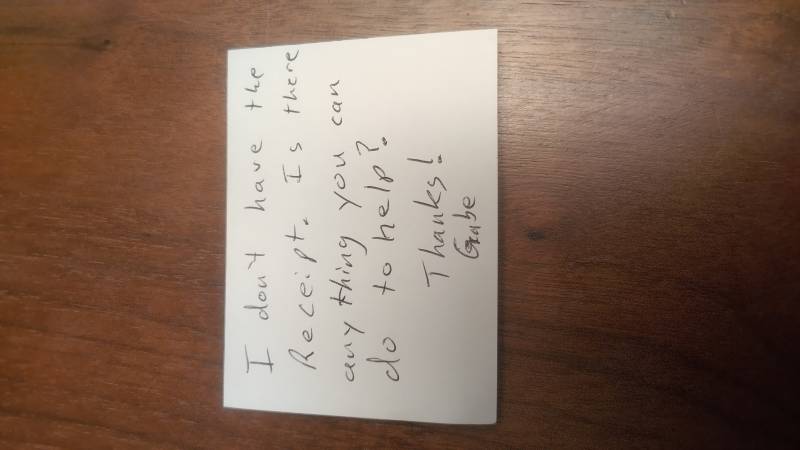 I don't have the
Receipt. Is there
any thing you can
do to help?
Thanks!
Gabe